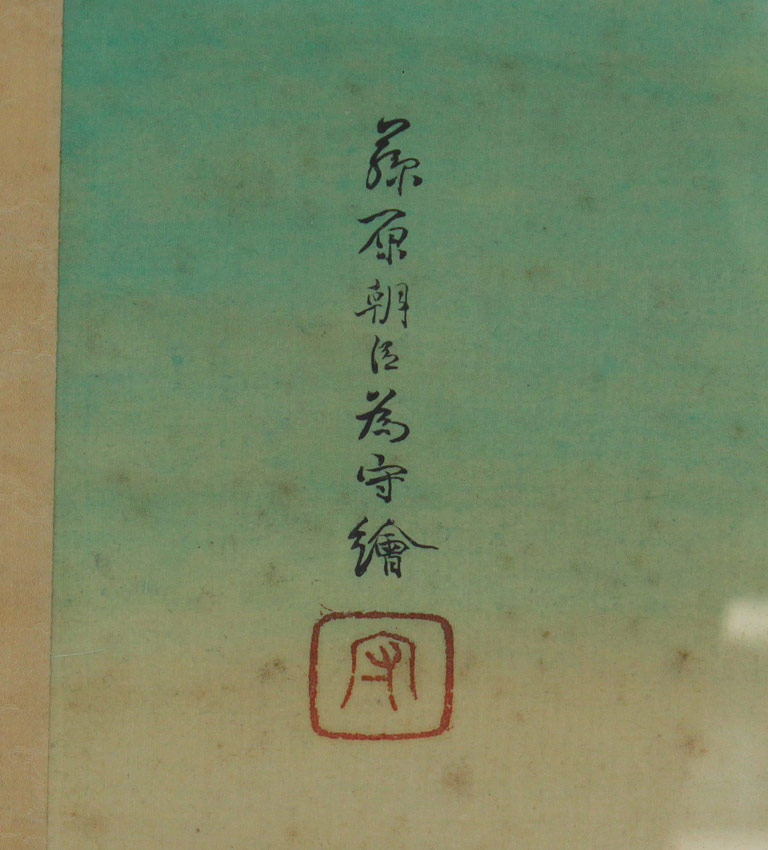 藤原朝臣為守繪
守